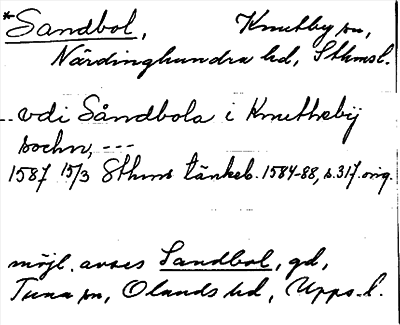 *Sandbol, Knutby sn,
Närdinghundra hd, Sthmsl.
-- vdi Såndbola i Knuttzbÿ
sochn, ---
1587 15/3 Sthms tänkeb. 1584-88, s. 317. orig.
möjl. avses Sandbol, gd,
Tuna sn, Olands hd, Upps. l.